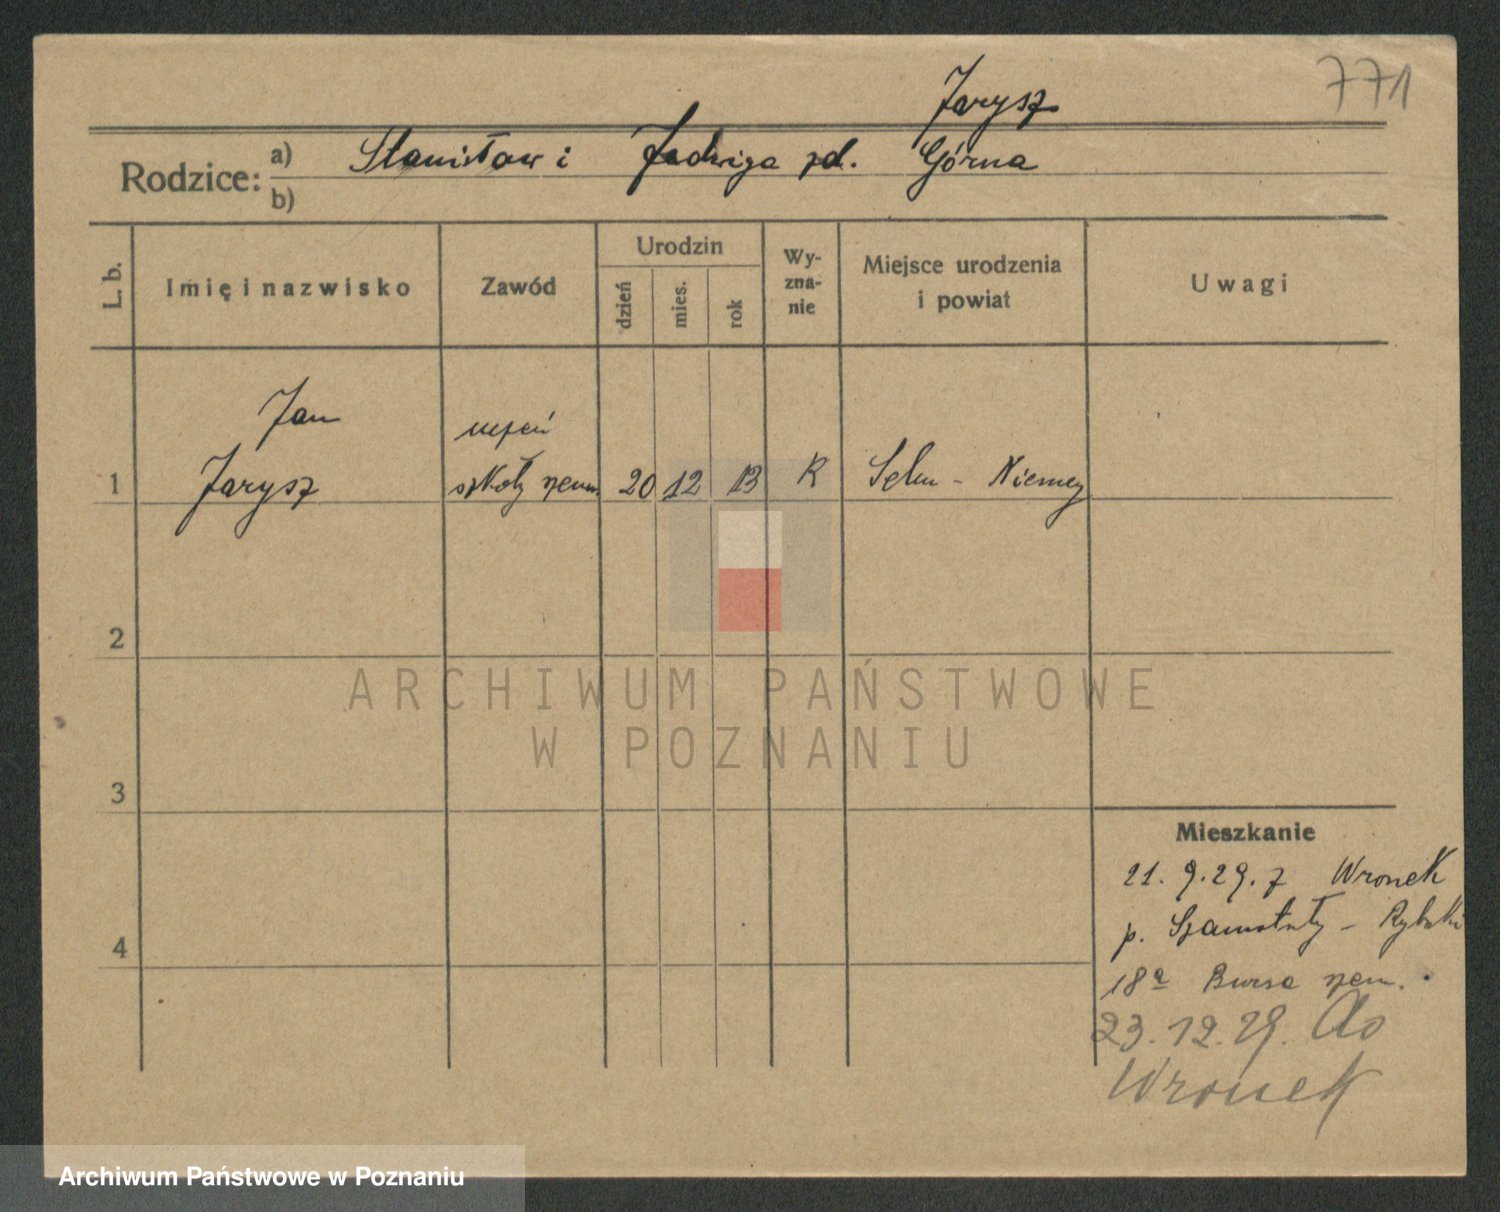 771
Jarysz
Rodzice: a) Stanisław i Jadwiga zd. Górna
b)
L. b.
Imię i nazwisko
Zawód
Urodzin
dzień
mies.
rok
Wy-
zna-
nie
Miejsce urodzenia
i powiat
Uwagi
Jan
uczeń
1 Jarysz szkoły rzem. 20 12 13 R - Niemcy
2
3
4
ARCHIWUM PAŃSTWOWE
W POZNANIU
Mieszkanie
21. 9. 29. z Wronek
p. Szamotuły - Rybaki
18a Bursa rzem.
23. 12. 29. do
Wronek
Archiwum Państwowe w Poznaniu